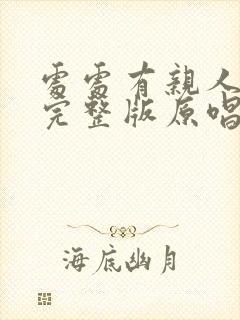 處處有親人
完整版原唱
海底幽月